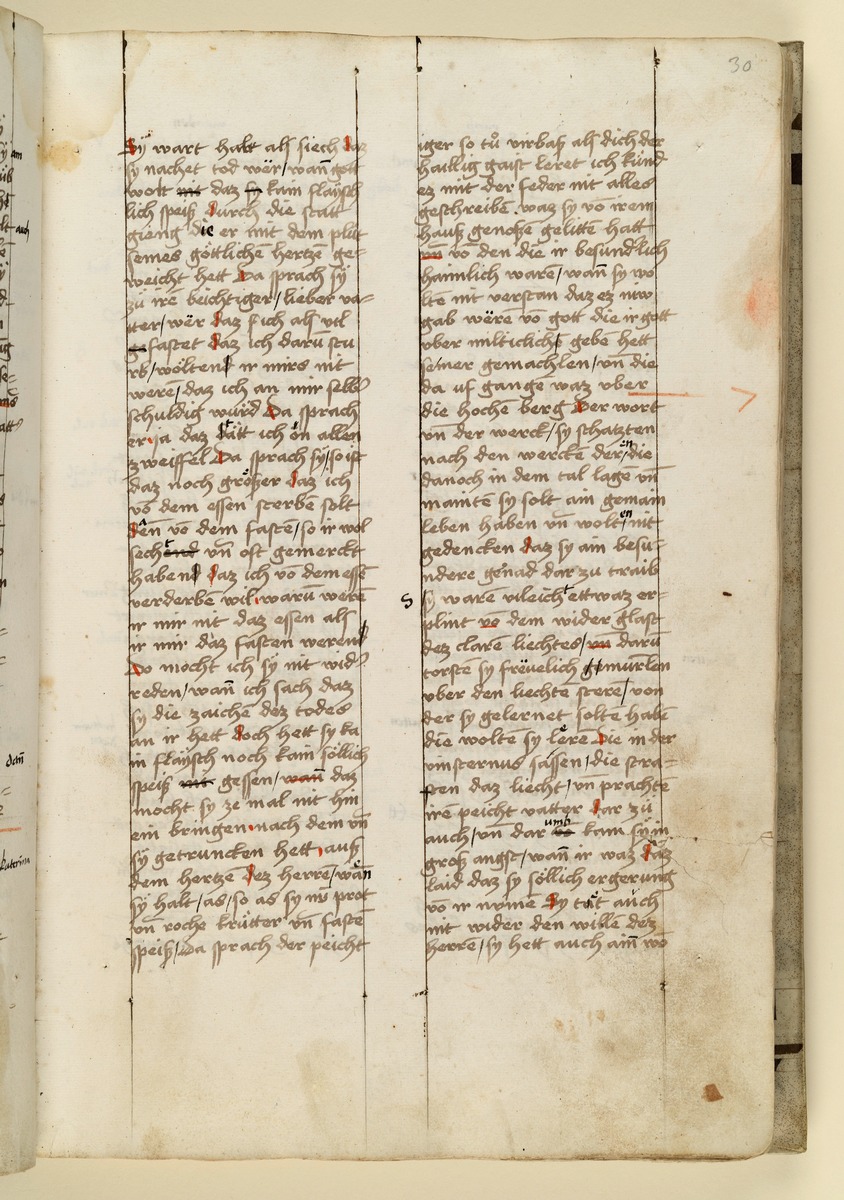 30
Sÿ wart halt als siech daz
sy nachet tod wër / wañ gott
wolt nit daz sy kain flaÿsch
lich speiß durch die statt
gieng die er mit dem plut
seines göttlichen hertze͂ ge=
weicht hett Da sprach sÿ
zü ire͂ beichtiger / lieber va=
tter / wër daz sich als vil
fastet daz ich darū stu
rb / wöltent ir mirs nit
were͂ / daz ich an mir selb
schuldig wurd Da sprach
er ja daz tätt ich ön allen
zweiffel Da sprach sÿ / so ist
daz noch größer daz ich
vo͂ dem essen sterbe͂ solt
den͂ vo͂ dem faste͂ / so ir wol
sechend vn͂ oft gemerckt
habent daz ich vo͂ dem esse͂
verderbe͂ wil waru͂ were͂
ir mir nit daz essen als
ir mir daz fasten werent
Do mocht ich sÿ nit wid
reden / wañ ich sach daz
sy die zaichen dez todes
an ir hett doch hett sy ka
in flaÿsch noch kain söllich
speiß nit gessen / wañ daz
mocht sy ze mal nit hin
ein bringen nach dem vn͂
sÿ getruncken hett auß
dem hertze͂ dez herre͂ / wän
sÿ halt / as / so as sy nv͂ prot
vn͂ roche krütter vn͂ faste͂
speiß / Da sprach der peicht
iger so tů virbas als dich der
haillig gaist leret ich künd
ez mit der feder nit alles
geschreibe͂ waz sy vo͂ irem
hauß genoße͂ gelitten hatt
vn͂ vo͂ den die ir besund͂lich
haimlich ware͂ / wañ sy wo
lte͂ nit verstan daz ez niw
gab wëre͂ vo͂ gott die ir gott
vber milticlich gebe͂ hett
seiner gemachlen / vn͂ die
da uf gange͂ waz vber
die hoche͂ berg Der wort
vn͂ der werck / sy schatzten
nach den wercke͂ deren / die
danoch in dem tal lage͂ vn͂
mainte͂ sy solt ain gemain
leben haben vn͂ wolten nit
gedencken daz sy ain besu=
ndere genad dar zu traib
S sy ware͂ vileicht ettwaz er=
plint vo͂ dem wider glast
dez clare͂ liechtes / vn͂ daru͂
torste͂ sy freuelich murlen
vber den liechte͂ stere͂ / von
der sy gelernet solte͂ habe͂
die wolten sy lere͂ die in der
vinsternus sassen / die stra=
fften daz liecht / vn͂ prachte͂
ire͂ peicht vatter dar zü
auch / vn͂ dar umb kam sy in
groß angst / wañ ir waz daz
laid daz sy söllich ergerung
vo͂ ir nv͂me͂ Sy tät auch
nit wider den wille͂ dez
herre͂ / sy hett auch aim͂ wo